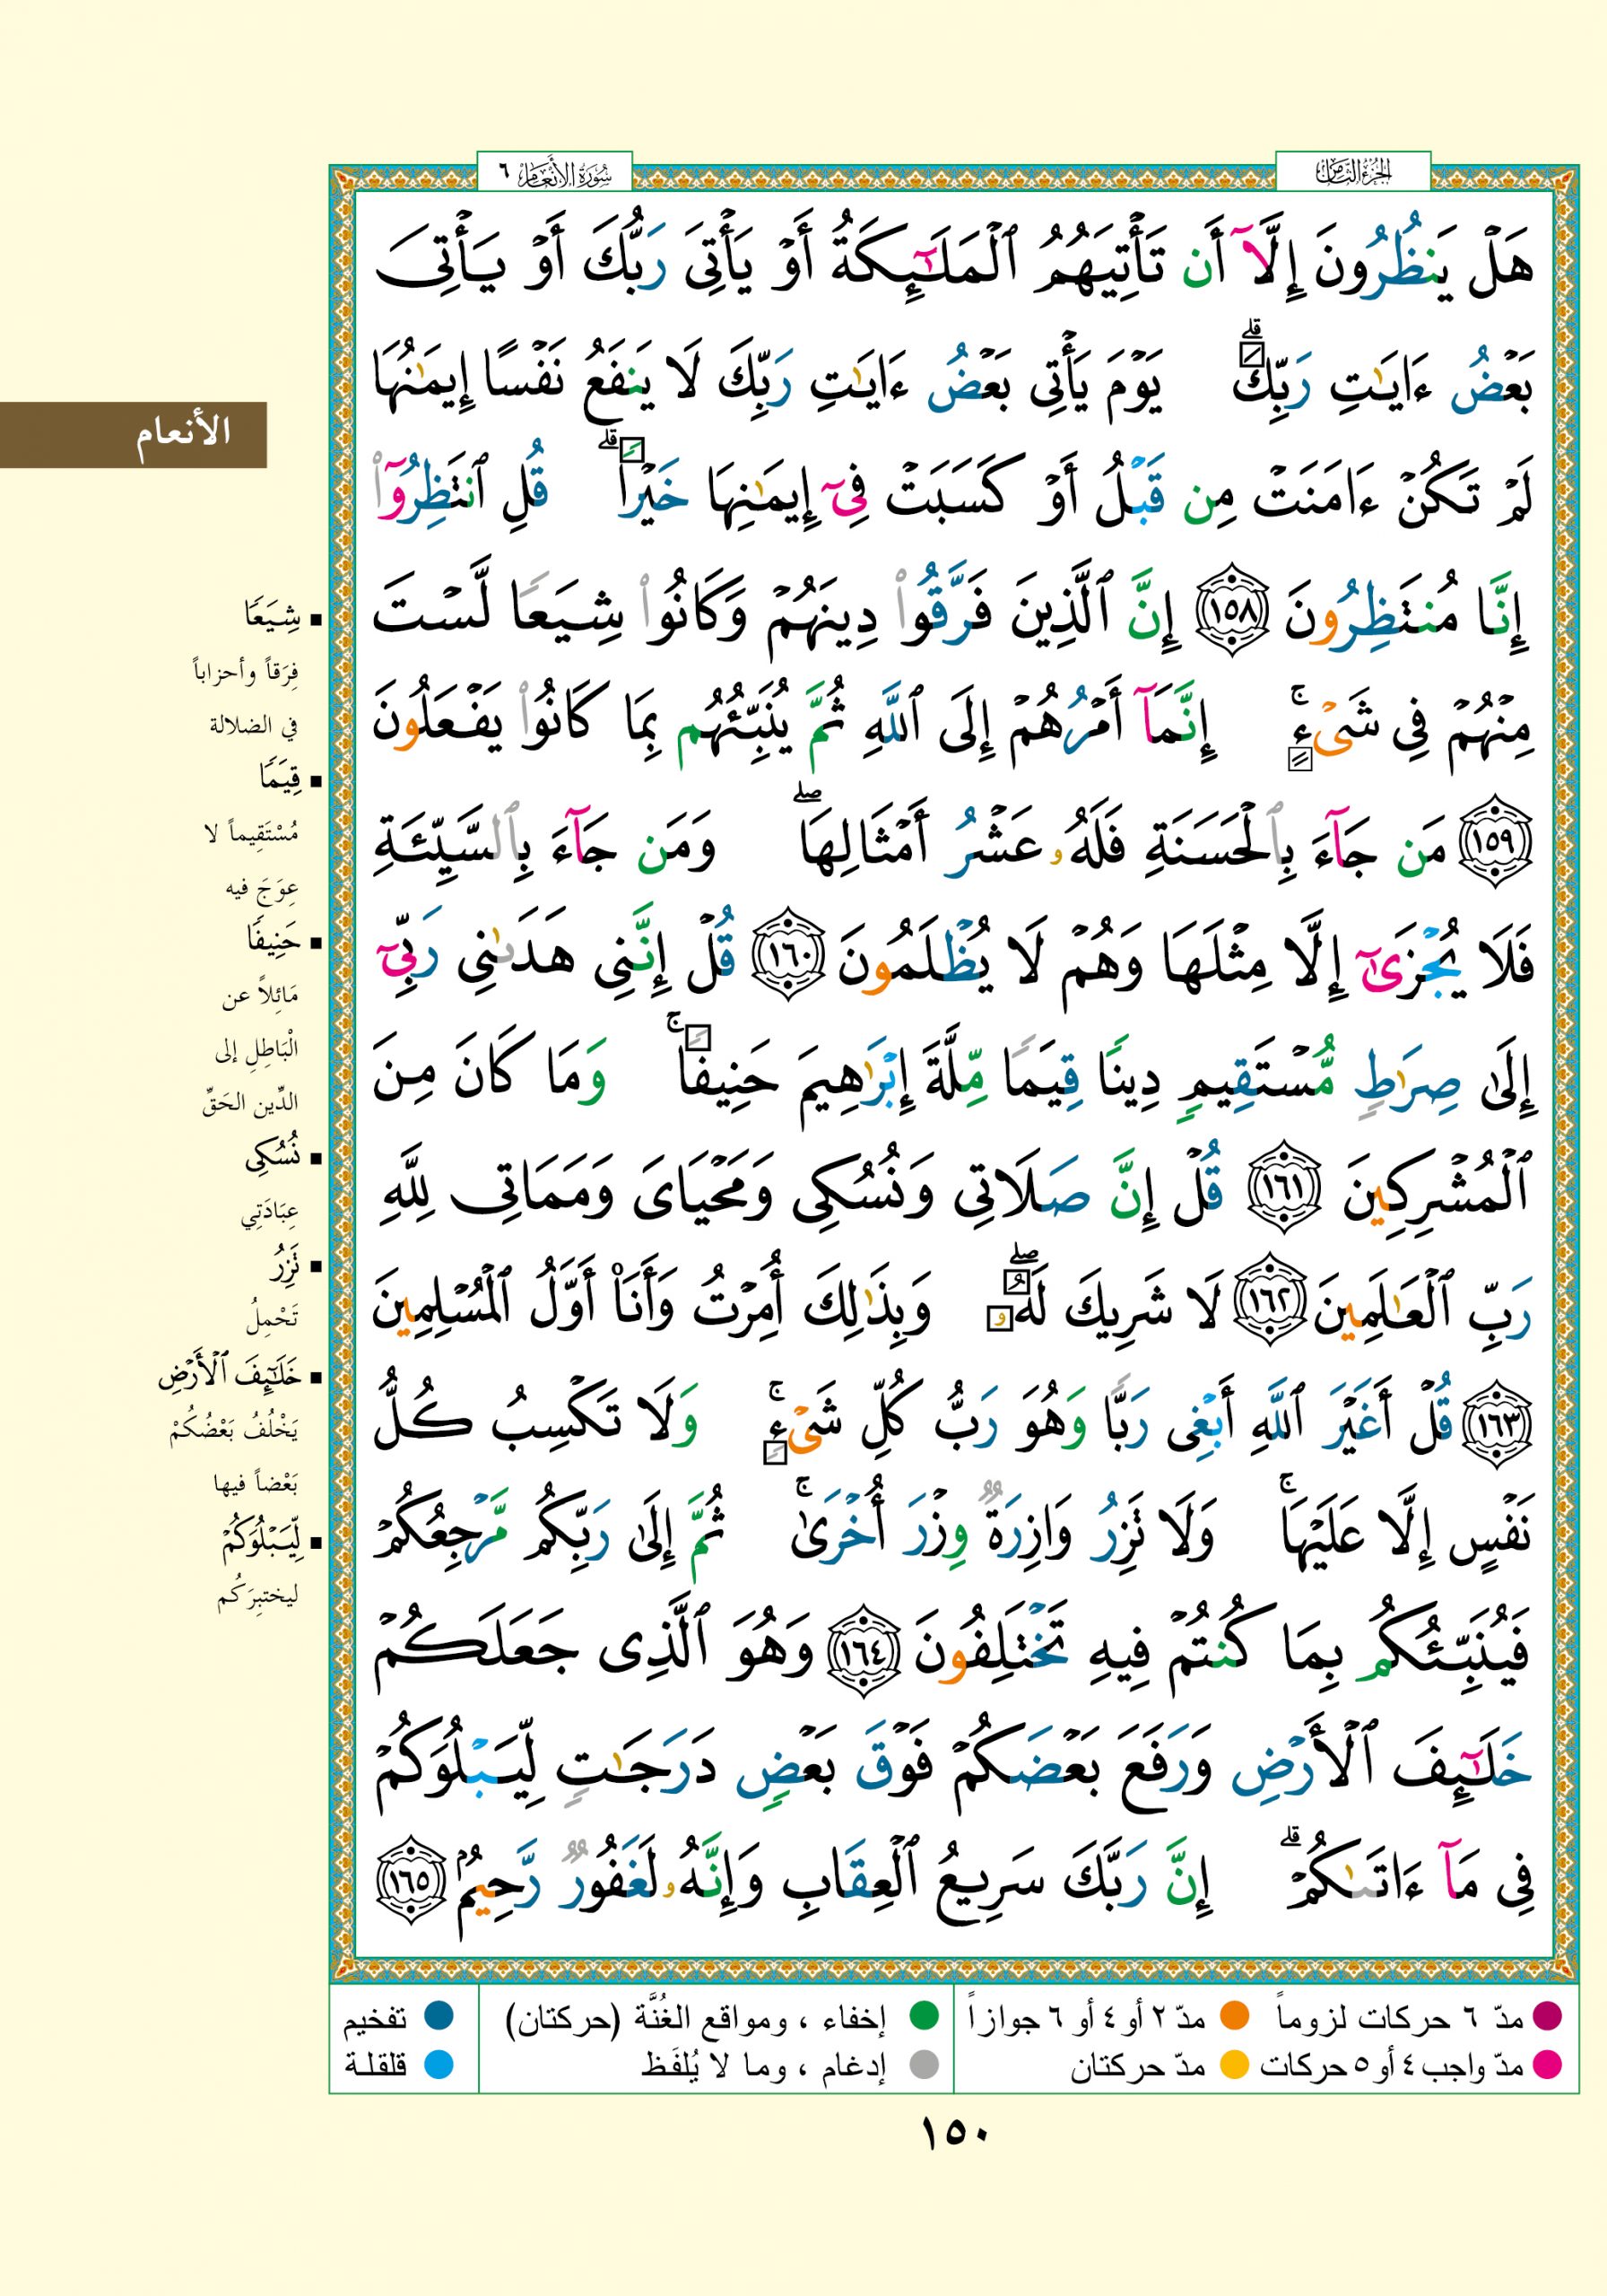 الجزء الثامن
سورة الأنعام ٦
هَلْ يَنظُرُونَ إِلَّآ أَن تَأْتِيَهُمُ ٱلْمَلَـٰٓئِكَةُ أَوْ يَأْتِىَ رَبُّكَ أَوْ يَأْتِىَ
بَعْضُ ءَايَـٰتِ رَبِّكَ ۗ يَوْمَ يَأْتِى بَعْضُ ءَايَـٰتِ رَبِّكَ لَا يَنفَعُ نَفْسًا إِيمَـٰنُهَا
لَمْ تَكُنْ ءَامَنَتْ مِن قَبْلُ أَوْ كَسَبَتْ فِىٓ إِيمَـٰنِهَا خَيْرًا ۗ قُلِ ٱنتَظِرُوٓا۟
إِنَّا مُنتَظِرُونَ ١٥٨ إِنَّ ٱلَّذِينَ فَرَّقُوا۟ دِينَهُمْ وَكَانُوا۟ شِيَعًا لَّسْتَ
مِنْهُمْ فِى شَىْءٍ ۚ إِنَّمَآ أَمْرُهُمْ إِلَى ٱللَّهِ ثُمَّ يُنَبِّئُهُم بِمَا كَانُوا۟ يَفْعَلُونَ
١٥٩ مَن جَآءَ بِٱلْحَسَنَةِ فَلَهُۥ عَشْرُ أَمْثَالِهَا ۖ وَمَن جَآءَ بِٱلسَّيِّئَةِ
فَلَا يُجْزَىٰٓ إِلَّا مِثْلَهَا وَهُمْ لَا يُظْلَمُونَ ١٦٠ قُلْ إِنَّنِى هَدَىٰنِى رَبِّىٓ
إِلَىٰ صِرَٰطٍ مُّسْتَقِيمٍ دِينًا قِيَمًا مِّلَّةَ إِبْرَٰهِيمَ حَنِيفًا ۚ وَمَا كَانَ مِنَ
ٱلْمُشْرِكِينَ ١٦١ قُلْ إِنَّ صَلَاتِى وَنُسُكِى وَمَحْيَاىَ وَمَمَاتِى لِلَّهِ
رَبِّ ٱلْعَـٰلَمِينَ ١٦٢ لَا شَرِيكَ لَهُۥ ۖ وَبِذَٰلِكَ أُمِرْتُ وَأَنَا۠ أَوَّلُ ٱلْمُسْلِمِينَ
١٦٣ قُلْ أَغَيْرَ ٱللَّهِ أَبْغِى رَبًّا وَهُوَ رَبُّ كُلِّ شَىْءٍ ۚ وَلَا تَكْسِبُ كُلُّ
نَفْسٍ إِلَّا عَلَيْهَا ۚ وَلَا تَزِرُ وَازِرَةٌ وِزْرَ أُخْرَىٰ ۚ ثُمَّ إِلَىٰ رَبِّكُم مَّرْجِعُكُمْ
فَيُنَبِّئُكُم بِمَا كُنتُمْ فِيهِ تَخْتَلِفُونَ ١٦٤ وَهُوَ ٱلَّذِى جَعَلَكُمْ
خَلَـٰٓئِفَ ٱلْأَرْضِ وَرَفَعَ بَعْضَكُمْ فَوْقَ بَعْضٍ دَرَجَـٰتٍ لِّيَبْلُوَكُمْ
فِى مَآ ءَاتَىٰكُمْ ۗ إِنَّ رَبَّكَ سَرِيعُ ٱلْعِقَابِ وَإِنَّهُۥ لَغَفُورٌ رَّحِيمٌۢ ١٦٥
الأنعام
شِيَعًا
فِرَقاً وأحزاباً
في الضلالة
قِيَمًا
مُسْتَقِيماً لا
عِوَجَ فيه
حَنِيفًا
مَائِلاً عن
الْبَاطِلِ إلى
الدِّين الحَقِّ
نُسُكِى
عِبَادَتِي
تَزِرُ
تَحْمِلُ
خَلَـٰٓئِفَ ٱلْأَرْضِ
يَخْلُفُ بَعْضُكُمْ
بَعْضاً فيها
لِّيَبْلُوَكُمْ
ليختبِرَكُم
مدّ ٦ حركات لزوماً
مدّ ٢ أو ٤ أو ٦ جوازاً
إخفاء ، ومواقع الغُنَّة (حركتان)
تفخيم
مدّ واجب ٤ أو ٥ حركات
مدّ حركتان
إدغام ، وما لا يُلفَظ
قلقلة
١٥٠